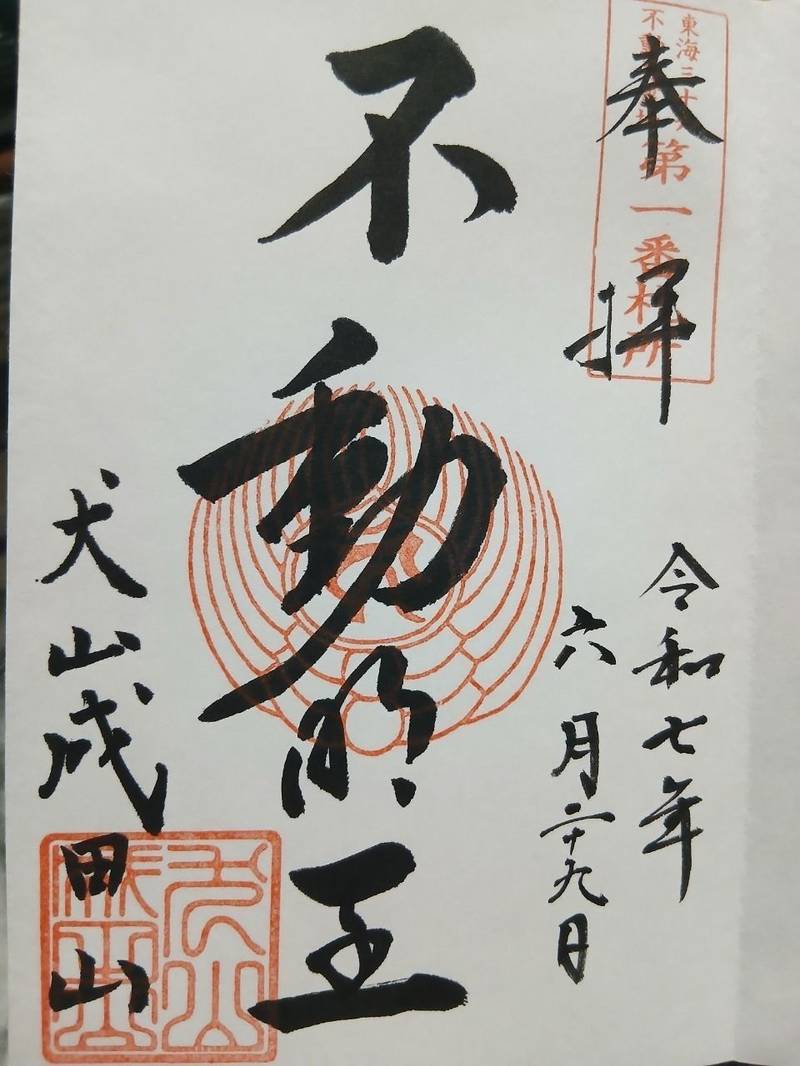 東海三十六
不動尊霊場
第一番札所
奉拝
令和七年
六月二十九日
不動明王
犬山成田山